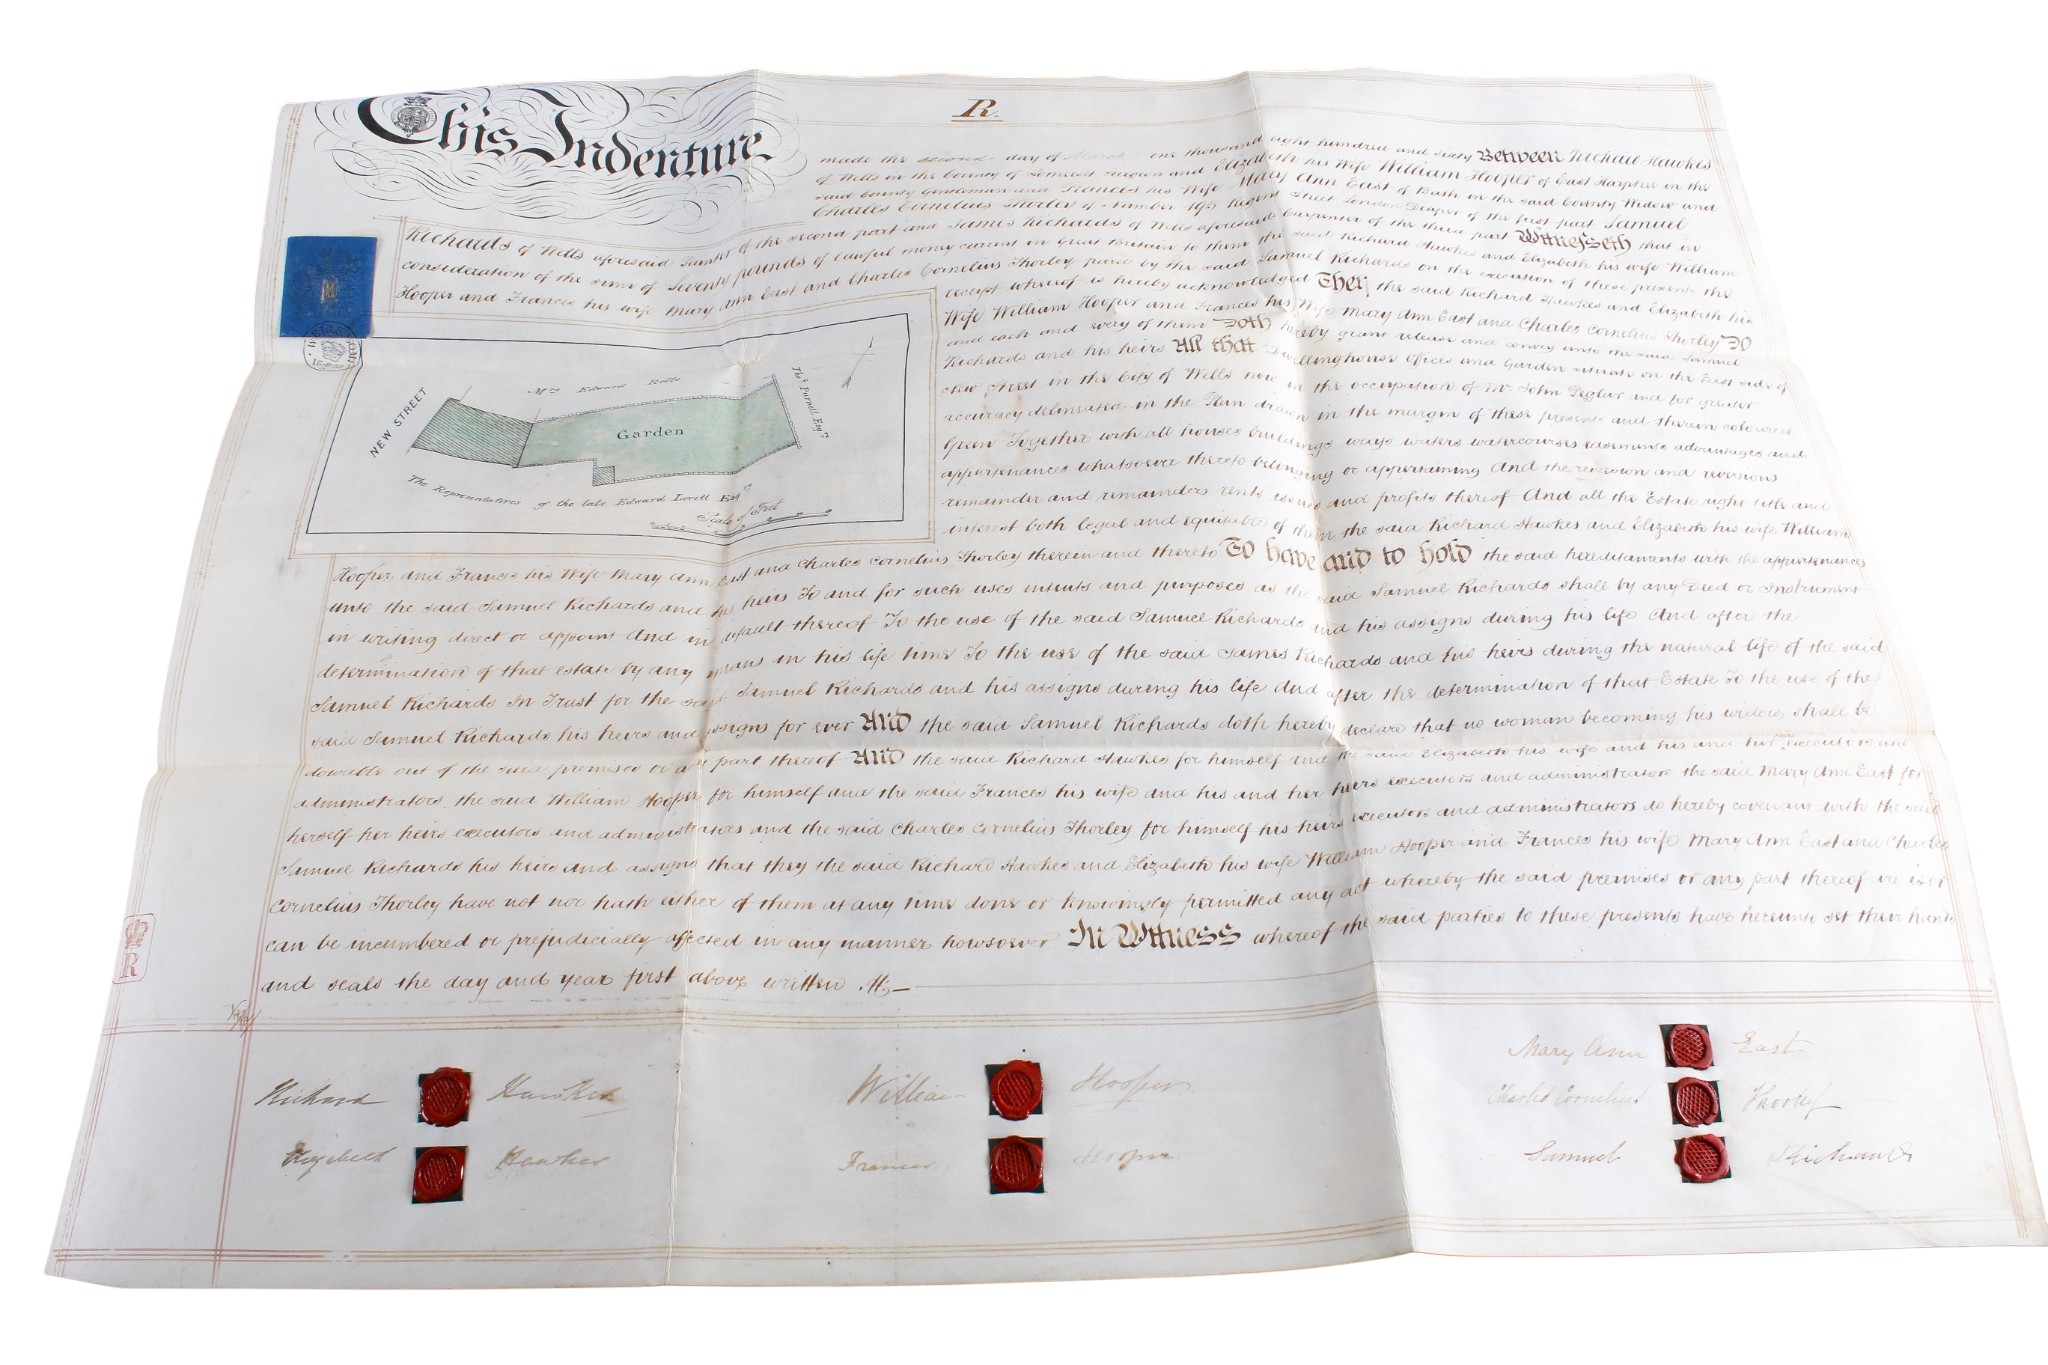 R.
This Indenture
made the second day of March one thousand eight hundred and sixty Between Richard Hawkes
of Wells in the County of Somerset Surgeon and Elizabeth his Wife William Hooper of East Harptree in the
said County Gentleman and Frances his Wife Mary Ann East of Bath in the said County Widow and
Charles Cornelius Thorley of Number 195 Regent Street London Draper of the first part Samuel
Richards of Wells aforesaid of the second part and James Richards of Wells aforesaid Carpenter of the third part Witnesseth that in
consideration of the sum of Seventy pounds of lawful money current in Great Britain to them the said Richard Hawkes and Elizabeth his wife William
Hooper and Frances his wife Mary Ann East and Charles Cornelius Thorley paid by the said Samuel Richards on the execution of these presents the
receipt whereof is hereby acknowledged They the said Richard Hawkes and Elizabeth his
Wife William Hooper and Frances his Wife Mary Ann East and Charles Cornelius Thorley Do
and each and every of them Doth hereby grant release and convey unto the said Samuel
Richards and his heirs All that Dwellinghouse Offices and Garden situate on the East side of
New Street in the City of Wells now in the occupation of Mr. John Peglar and for greater
accuracy delineated in the Plan drawn in the margin of these presents and therein coloured
Green Together with all houses buildings ways waters watercourses easements advantages and
appurtenances whatsoever thereto belonging or appertaining And the reversion and reversions
remainder and remainders rents issues and profits thereof And all the Estate right title and
interest both legal and equitable of them the said Richard Hawkes and Elizabeth his wife William
Hooper and Frances his Wife Mary Ann East and Charles Cornelius Thorley therein and thereto To have and to hold the said hereditaments with the appurtenances
unto the said Samuel Richards and his heirs To and for such uses intents and purposes as the said Samuel Richards shall by any Deed or Instrument
in writing direct or appoint And in default thereof To the use of the said Samuel Richards and his assigns during his life And after the
determination of that estate by any means in his life time To the use of the said James Richards and his heirs during the natural life of the said
Samuel Richards In Trust for the said Samuel Richards and his assigns during his life And after the determination of that Estate To the use of the
said Samuel Richards his heirs and assigns for ever And the said Samuel Richards doth hereby declare that no woman becoming his widow shall be
dowable out of the said premises or any part thereof And the said Richard Hawkes for himself and the said Elizabeth his wife and his and her executors and
administrators, the said William Hooper for himself and the said Frances his wife and his and her heirs executors and administrators the said Mary Ann East for
herself her heirs executors and administrators and the said Charles Cornelius Thorley for himself his heirs executors and administrators do hereby covenant with the said
Samuel Richards his heirs and assigns that they the said Richard Hawkes and Elizabeth his wife William Hooper and Frances his wife Mary Ann East and Charles
Cornelius Thorley have not nor hath either of them at any time done or knowingly permitted any act whereby the said premises or any part thereof are is or
can be incumbered or prejudicially affected in any manner howsoever In Witness whereof the said parties to these presents have hereunto set their hands
and seals the day and year first above written
NEW STREET
Mrs Edward Rolls
Thos Purnell Esqre
Garden
The Representatives of the late Edward Lovell Esqre
Scale of Feet
R
Richard Hawkes
Elizabeth Hawkes
William Hooper
Frances Hooper
Mary Ann East
Charles Cornelius Thorley
Samuel Richards